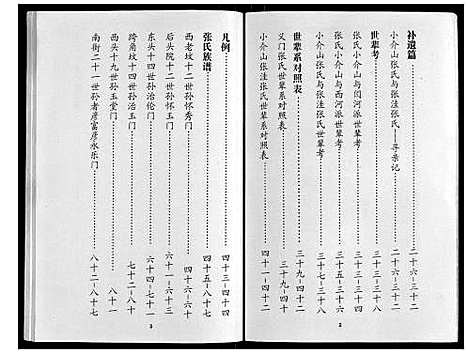 补遗篇……二十六–三十二
小介山张氏与张洼张氏——寻亲记……二十六–三十二
世辈考……三十三–三十七
张氏小介山与闫河派世辈考……三十三–三十四
张氏小介山与西河派世辈考……三十五–三十六
小介山张氏与张洼张氏世辈考……三十七
世辈系对照表……三十九–四十二
义门张氏世辈系对照表……三十九–四十
小介山张洼张氏世辈系对照表……四十一–四十二
2
凡例……四十三–四十四
张氏族谱……四十五–八十七
西老坟十二世孙怀秀门……四十六–六十
后头院十二世孙怀玉门……六十一–六十三
东头十四世孙治伦门……六十四–七十一
跨角坟十四世孙治玉门……七十二–
西头十九世孙玉堂门……
南街二十一世孙者彦富彦永乐门……八十二–八十七
3